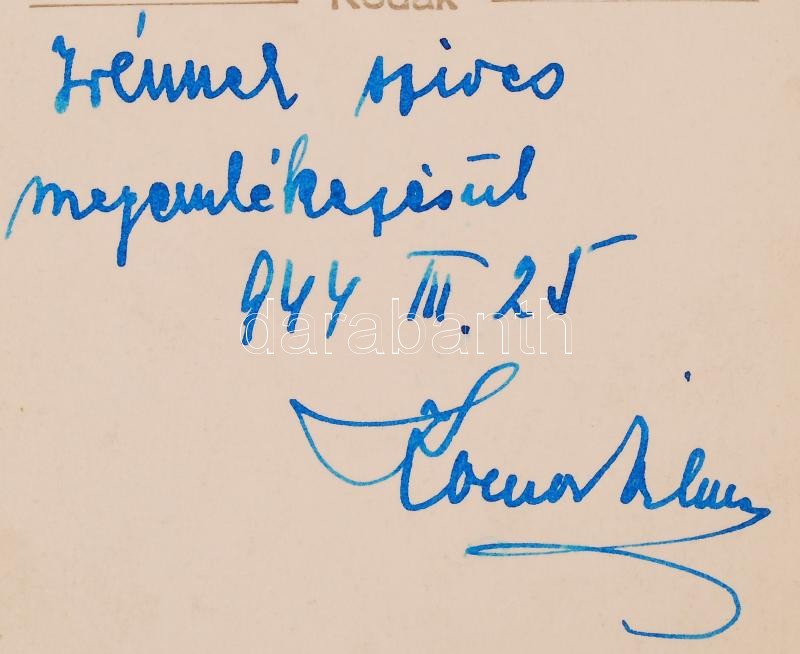 Kodak
Irénnek szives
megemlékezésül
944 III. 25
Komor Vilmos
darabanth